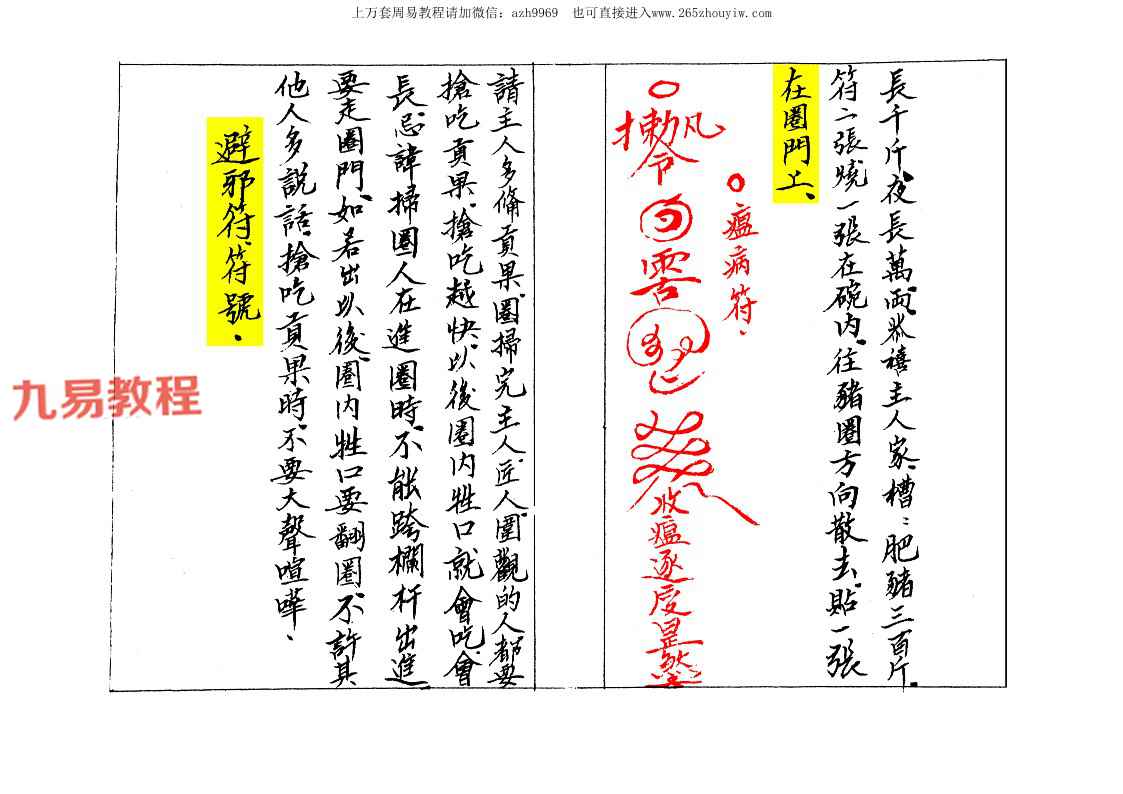 上万套周易教程请加微信：azh9969　也可直接进入www.265zhouyiw.com
長千斤、夜長萬両、恭禧主人家、槽：肥豬三百斤、
符二張燒一張在碗内、往豬圈方向散去、貼一張
在圈門上、
瘟病符、
勅令
收瘟逐疫
請主人多備貢果、圈掃完主人、匠人、圍觀的人都要
搶吃貢果、搶吃越快、以後圈内牲口就會吃、會
長、忌諱掃圈人在進圈時、不能跨欄杆出進、
要走圈門、如若出以後、圈内牲口要翻圈、不許其
他人多説話、搶吃貢果時、不要大聲喧嘩、
避邪符、符號、
九易教程